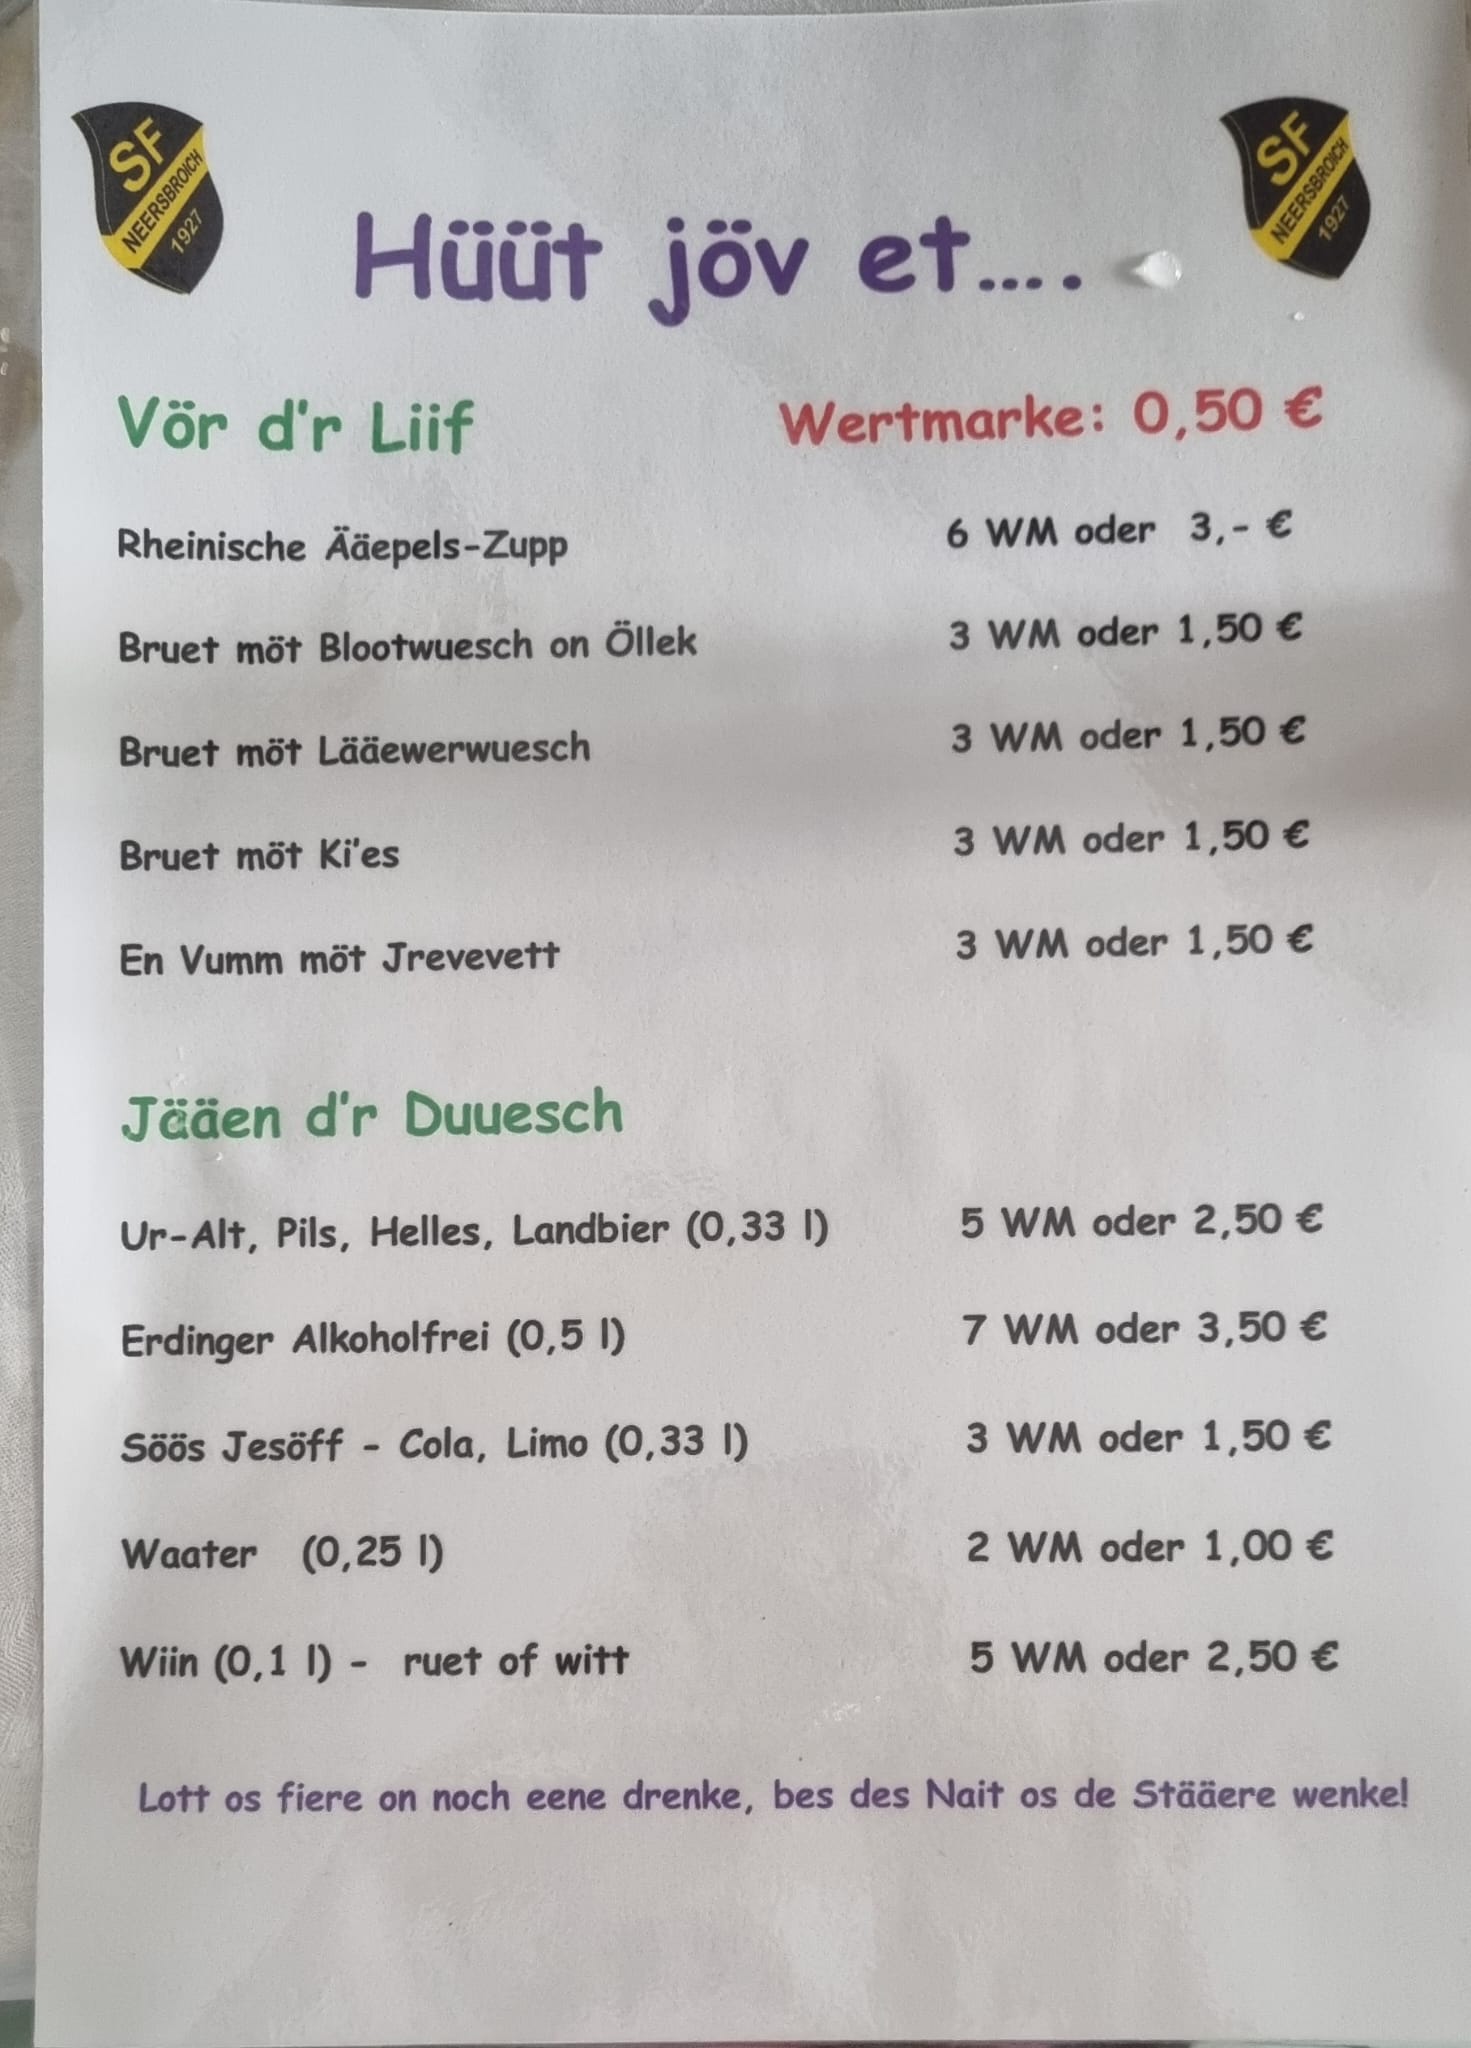 SF
NEERSBROICH
1927
SF
NEERSBROICH
1927
Hüüt jöv et....
Vör d'r Liif Wertmarke: 0,50 €
Rheinische Ääepels-Zupp 6 WM oder 3,- €
Bruet möt Blootwuesch on Öllek 3 WM oder 1,50 €
Bruet möt Lääewerwuesch 3 WM oder 1,50 €
Bruet möt Ki'es 3 WM oder 1,50 €
En Vumm möt Jrevevett 3 WM oder 1,50 €
Jääen d'r Duuesch
Ur-Alt, Pils, Helles, Landbier (0,33 l) 5 WM oder 2,50 €
Erdinger Alkoholfrei (0,5 l) 7 WM oder 3,50 €
Söös Jesöff - Cola, Limo (0,33 l) 3 WM oder 1,50 €
Waater (0,25 l) 2 WM oder 1,00 €
Wiin (0,1 l) - ruet of witt 5 WM oder 2,50 €
Lott os fiere on noch eene drenke, bes des Nait os de Stääere wenke!